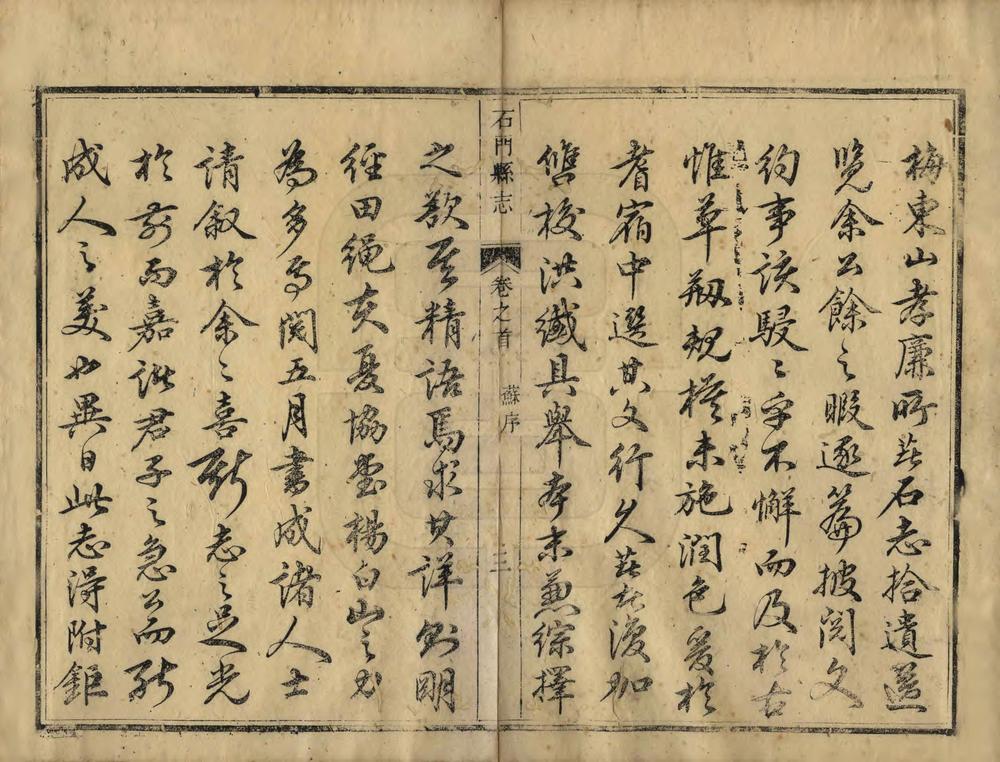 梅東山孝廉所著石志拾遺送
覽余公餘之暇逐篇披閱文
約事該駸駸乎不懈而及於古
惟草剏規模未施潤色爰於
耆宿中選其文行久著者復加
讐校洪纖具舉本末兼綜擇
石門縣志 卷之首 蘇序 三
之歘至精語焉求其詳則明
經田繩夫夏協堂楊白山之力
為多焉閱五月書成諸人士
請叙於余余喜斯志之足光
於前而嘉諸君子之急公而能
成人之美也異日此志得附鉅